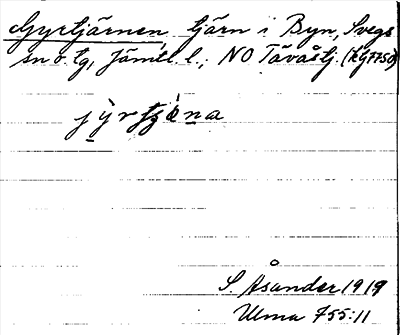 Gyrtjärnen, tjärn i Byn, Svegs
sn o. tg, Jämtl. l.; NO Tävåstj.
jy̱rtjä̀ṉa
S. Åsander 1919
Ulma 755:11